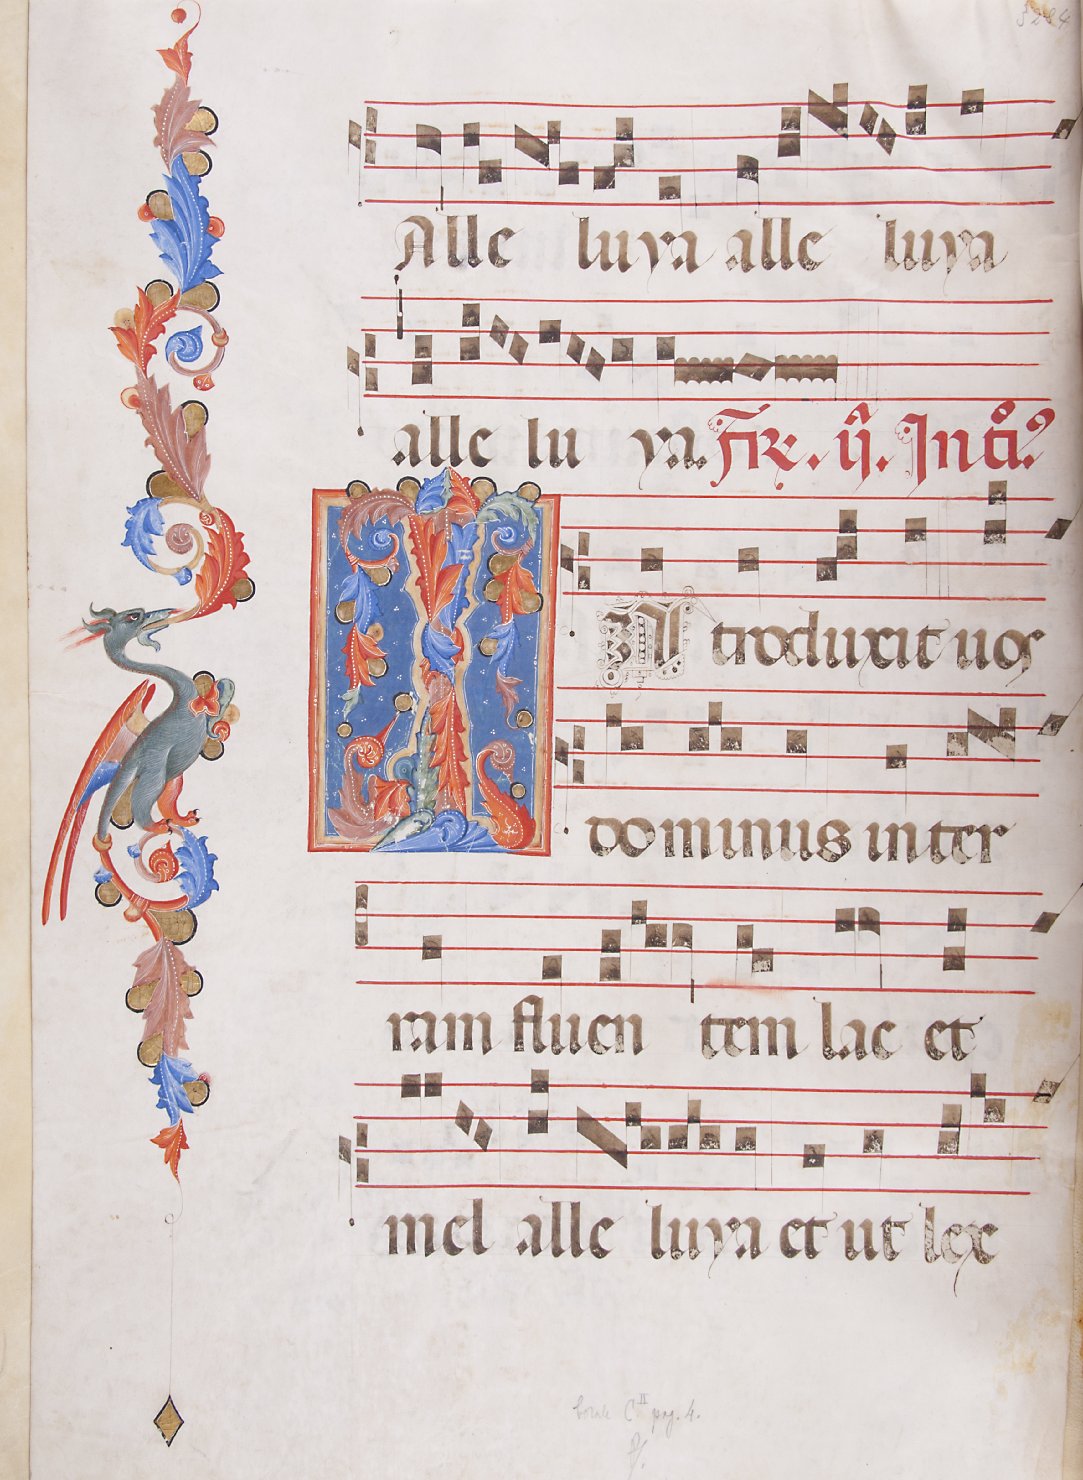 Alle luya alle luya
alle lu ya. Fr. ij. Int̃.
IN troduxit uos
dominus inter
ram fluen tem lac et
mel alle luya et ut lex
pag. 4.